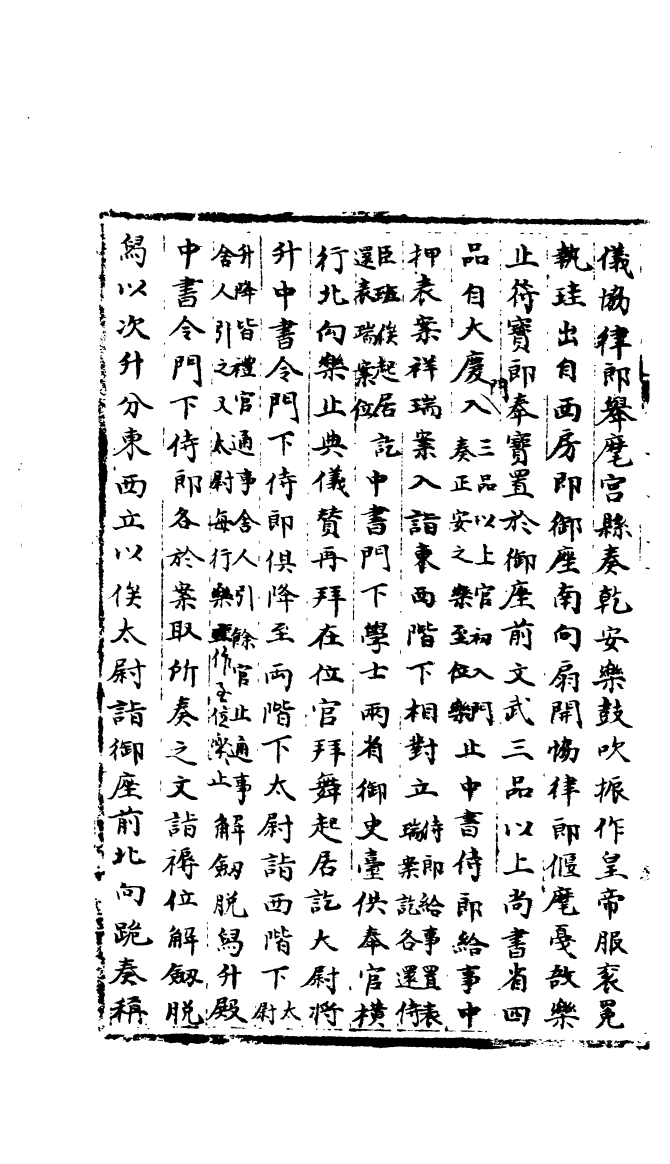 儀協律郎舉麾宮縣奏乾安樂鼓吹振作皇帝服衮冕
執珪出自西房即御座南向扇開恊律郎偃麾戞敔樂
止待寶郎奉寶置於御座前文武三品以上尚書省四
品自大慶門入三品以上官初入門奏正安之樂至位樂止中書侍郎給事中
押表案祥瑞案入詣東西階下相對立侍郎給事置表瑞案訖各還侍
臣班俟起居還表瑞案位訖中書門下學士兩省御史臺供奉官橫
行北向樂止典儀贊再拜在位官拜舞起居訖大尉将
升中書令門下侍郎俱降至兩階下太尉詣西階下太尉
升降皆禮官通事舍人引餘官止通事舍人引之又太尉每行樂作至位樂止解劔脱舄升殿
中書令門下侍郎各於案取所奏之文詣褥位解劔脱
舄以次升分東西立以俟太尉詣御座前北向跪奏稱